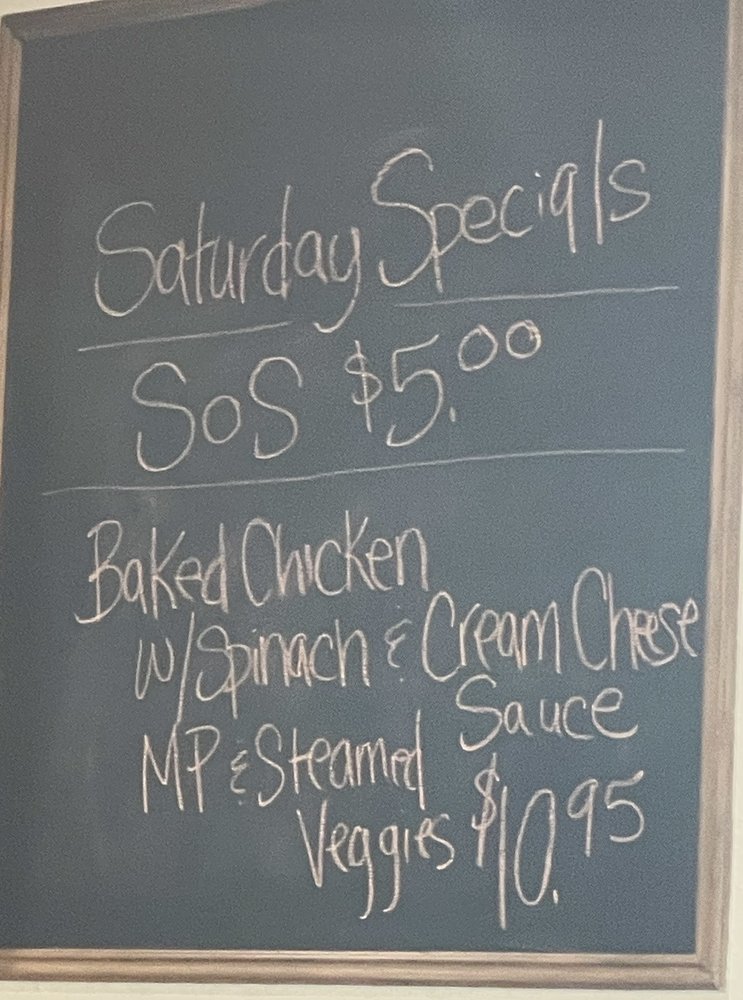 Saturday Specials
SOS $5.00
Baked Chicken
w/Spinach & Cream Cheese
Sauce
MP & Steamed
Veggies $10.95